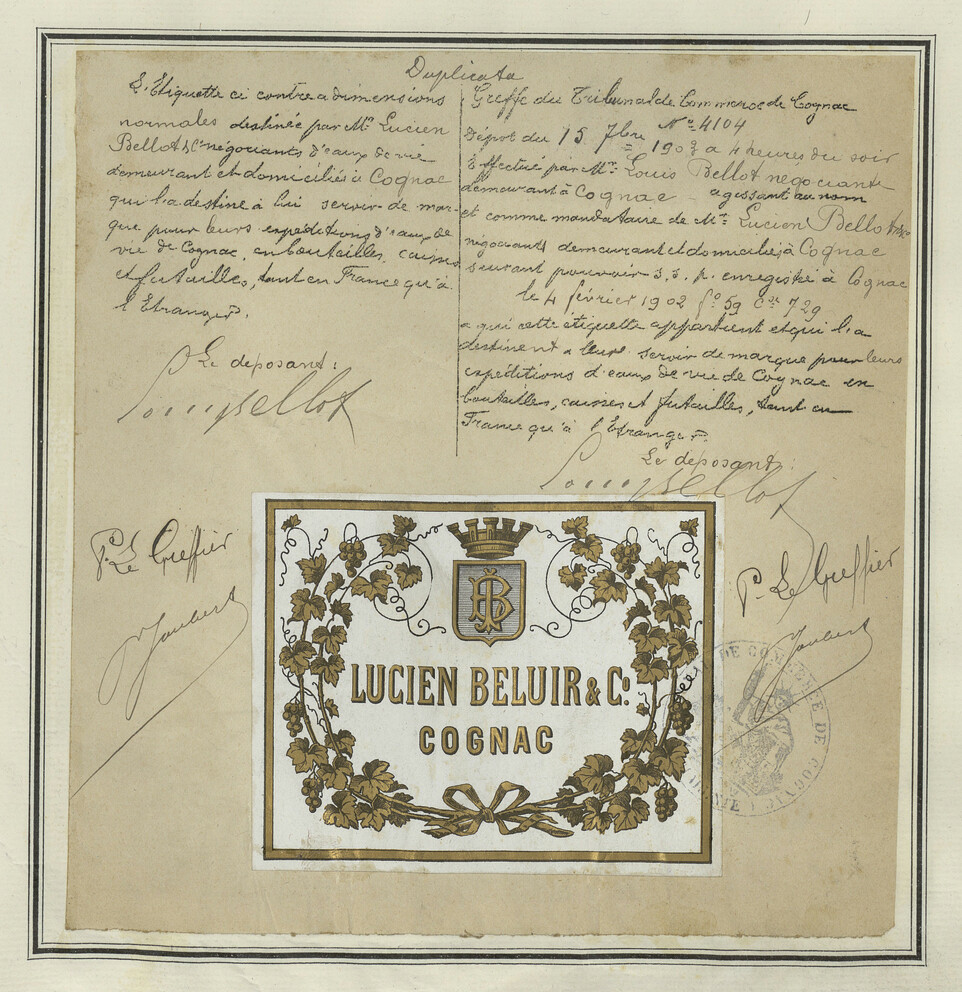 Duplicata
L'Etiquette ci contre a dimensions
normales destinée par Mr. Lucien
Bellot & Cie négociants d'eaux de vie
demeurant et domiciliés à Cognac
qui l'a destine à lui servir de mar-
que pour leurs expéditions d'eaux de
vie de Cognac, en bouteilles, caisses
et futailles, tant en France qu'à
l'Etranger.
Le deposant:
Louis Bellot
P. Le Greffier
Joubert
Greffe du Tribunal de Commerce de Cognac
No 4104
Dépot du 15 7bre 1903 a 4 heures du soir
Effectué par Mr. Louis Bellot négociant
demeurant à Cognac agissant au nom
et comme mandataire de Mr. Lucien Bellot & Cie
négociants demeurant et domiciliés à Cognac
suivant pouvoir s.s.p. enregistré à Cognac
le 4 février 1902 fo 59 Ce 729
a qui cette étiquette appartient et qui l'a
destinent a leurs servir de marque pour leurs
expéditions d'eaux de vie de Cognac en
bouteilles, caisses et futailles, tant en
France qu'à l'Etranger.
Le déposant:
Louis Bellot
P. Le Greffier
Joubert
B
LUCIEN BELUIR & Co.
COGNAC
DE COMMERCE DE COGNAC